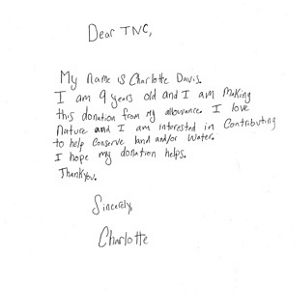 Dear TNC,
My name is Charlotte Davis.
I am 9 years old and I am Making
this donation from my allowance. I love
Nature and I am interested in Contributing
to help Conserve land and/or Water.
I hope my donation helps.
Thankyou.
Sincerely,
Charlotte